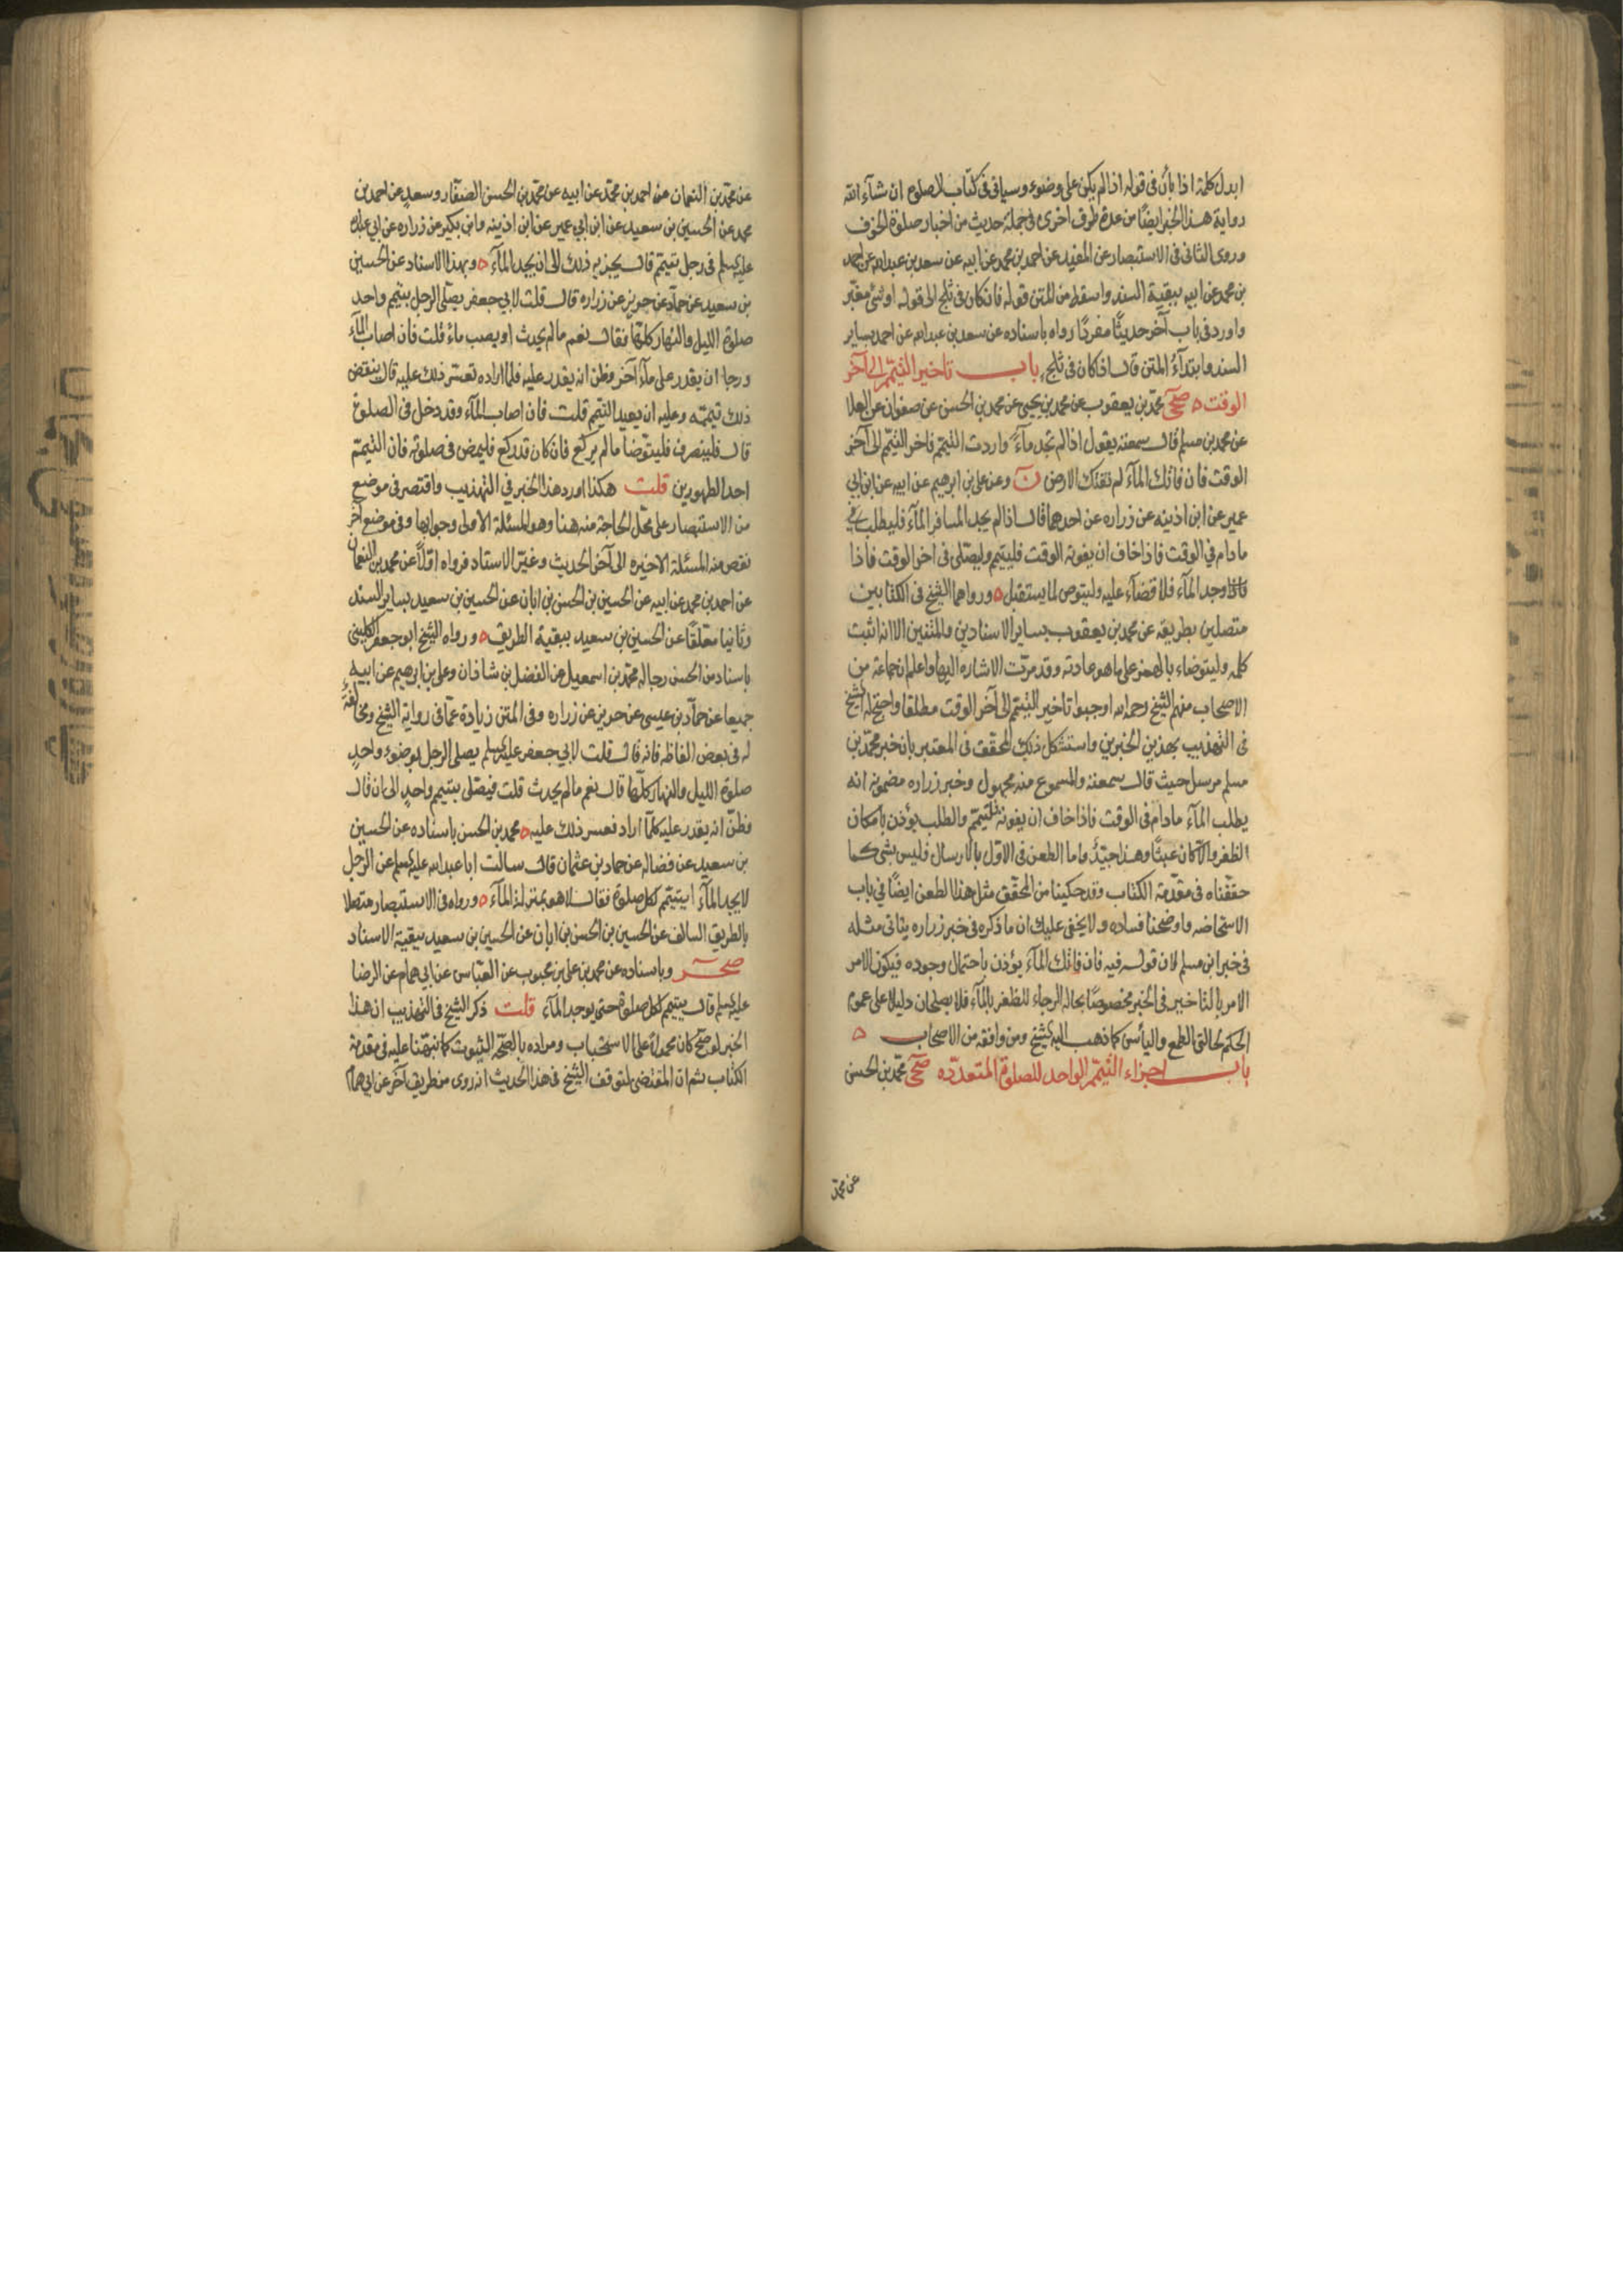 ابدل كلمة اذا بأن فى قوله اذا لم يكن على وضوء وسياتى فى كتاب الصلوة ان شآء الله
رواية هذا الخبر ايضًا من عدة طرق اخرى فى جملة حديث من اخبار صلوة الخوف
وروى الثانى فى الاستبصار عن المفيد عن احمد بن محمد عن ابيه عن سعد بن عبد الله عن احمد
بن محمد عن ابيه ببقية السند واسقط من المتن قوله فان كان فى ثلج الى قوله او شئ مغبّر
واورد فى باب آخر حديثًا مفردًا رواه باسناده عن سعد بن عبد الله عن احمد بساير
السند وابتدآءُ المتن قال اذا كان فى ثلج باب تاخير التيمّم الى آخر
الوقت ه صحى محمد بن يعقوب عن محمد بن يحيى عن محمد بن الحسن عن صفوان عن العلا
عن محمد بن مسلم قال سمعته يقول اذا لم تجد مآءً واردت التيمّم فاخر التيمّم الى آخر
الوقت فان فاتك المآء لم تفتك الارض ن وعن على بن ابرهيم عن ابيه عن ابن ابى
عمير عن ابن اذينه عن زراره عن احدهما قال اذا لم يجد المسافر المآء فليطلب
ما دام فى الوقت فاذا خاف ان يفوته الوقت فليتيمم وليصّلى فى اخر الوقت فاذا
وجد المآء فلا قضآء عليه وليتوض لما يستقبل ه ورواهما الشيخ فى الكتابين
متصلين بطريقه عن محمد بن يعقوب بساير الاسنادين والمتنين الا انه اثبت
كلمه وليتوضاء بالهمز على ما هو عادته وقد مرّت الاشاره اليها واعلم ان جماعة من
الاصحاب منهم الشيخ رحمه الله اوجبوا تاخير التيمّم الى آخر الوقت مطلقا واحتج له الشيخ
فى التهذيب بهذين الخبرين واستشكل ذلك المحقق فى المعتبر بان خبر محمّد بن
مسلم مرسل حيث قال سمعته والمسموع منه مجهول وخبر زراره مضمونه انه
يطلب المآء ما دام فى الوقت فاذا خاف ان يفوته فليتيمّم والطلب يؤذن بامكان
الظفر والّا كان عبثًا وهذا جيّدٌ واما الطعن فى الاوّل بالارسال فليس بشئ كما
حققناه فى مقدّمة الكتاب وقد حكينا من المحقّق مثل هذا الطعن ايضًا فى باب
الاستحاضه واوضحنا فساده ولا يخفى عليك ان ما ذكره فى خبر زراره يتاتى مثله
فى خبر ابن مسلم لان قوله فيه فان فاتك المآء يؤذن باحتمال وجوده فيكون الامر
الامر بالتاخير فى الخبر مخصوصًا بحاله الرجاء للظفر بالمآء فلا يصلحان دليلا على عموم
الحكم لحالتى الطمع والياس كما ذهب اليه الشيخ ومن وافقه من الاصحاب ه
باب اجزاء التيمّم الواحد للصلوة المتعدّده صحى محمّد بن الحسن
عن محمّد
عن محمّد بن النعمان عن احمد بن محمّد عن ابيه عن محمّد بن الحسن الصفّار وسعد عن احمد بن
محمد عن الحسين بن سعيد عن ابن ابى عمير عن ابن اذينه وابن بكير عن زراره عن ابى عبد الله
عليه السلم فى رجل تيمّم قال يجزيه ذلك الى ان يجد المآء ه وبهذا الاسناد عن الحسين
بن سعيد عن حمّاد عن حريز عن زراره قال قلت لابى جعفر يصلّى الرجل بتيمم واحد
صلوة الليل والنهار كلّها فقال نعم ما لم يحدث او يصب ماءً قلت فان اصاب المآء
ورجا ان يقدر على مآء آخر وظن انه يقدر عليه فلما اراده تعسّر ذلك عليه قال ينقض
ذلك تيمّمه وعليه ان يعيد التيمم قلت فان اصاب المآء وقد دخل فى الصلوة
قال فلينصرف فليتوّضا ما لم يركع فان كان قد ركع فليمض فى صلوته فان التيمّم
احد الطهورين قلت هكذا اورد هذا الخبر فى التهذيب واقتصر فى موضع
من الاستبصار على محّل الحاجة منه هنا وهو المسئلة الاولى وجوابها وفى موضع آخر
نقص منه المسئلة الاخيره الى آخر الحديث وغيّر الاسناد فرواه اوّلاً عن محمد بن النعمان
عن احمد بن محمد عن ابيه عن الحسين بن الحسن بن ابان عن الحسين بن سعيد بساير السند
وثانيا معّلقًا عن الحسين بن سعيد ببقية الطريق ه ورواه الشيخ ابو جعفر الكلينى
باسناد من الحسن رجاله محمّد بن اسمعيل عن الفضل بن شاذان وعلى بن ابرهيم عن ابيه
جميعا عن حمّاد بن عيسى عن حريز عن زراره وفى المتن زيادة عمّا فى رواية الشيخ ومخالفةٌ
له فى بعض الفاظه فانه قال قلت لابى جعفر عليه السلم يصلى الرجل بوضوء واحدٍ
صلوة الليل والنهار كلّها قال نعم ما لم يحدث قلت فيصّلى بتيمم واحدٍ الى ان قال
وظنّ انه يقدر عليه كلّما اراد فعسر ذلك عليه ه محمد بن الحسن باسناده عن الحسين
بن سعيد عن فضاله عن حماد بن عثمان قال سالت ابا عبد الله عليه السلم عن الرجل
لا يجد المآء ايتيمّم لكل صلوة فقال لا هو بمنزلة المآء ه ورواه فى الاستبصار متصلا
بالطريق السالف عن الحسين بن الحسن بن ابان عن الحسين بن سعيد ببقية الاسناد
صحر وباسناده عن محمد بن على بن محبوب عن العبّاس عن ابى همام عن الرضا
عليه السلم قال يتيمم لكل صلوة حتى يوجد المآء قلت ذكر الشيخ فى التهذيب ان هذا
الخبر لو صحّ كان محمولاً على الاستحباب ومراده بالصّحه الثبوت كما نبّهنا عليه فى مقدمة
الكتاب ثم ان المقتضى لتوقف الشيخ فى هذا الحديث انه روى من طريق آخر عن ابى همام